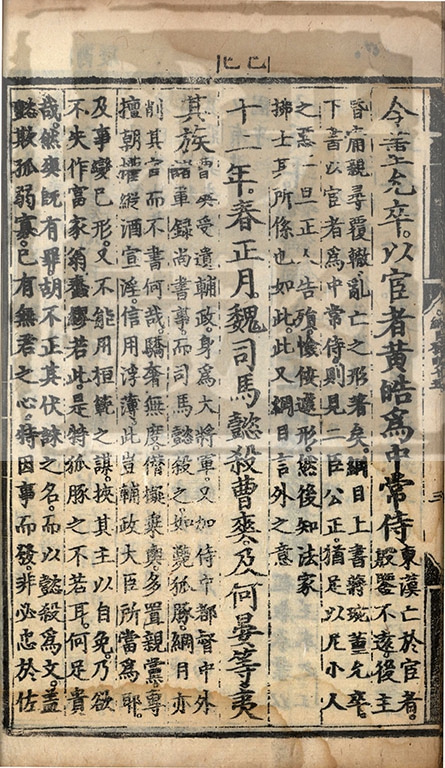 己巳
令董允卒。以宦者黃皓爲中常侍東漢亡於宦者。
殷鑒不遠。後主
昏庸親尋覆轍。亂亡之形著矣。綱目上書蔣琬董允卒。
下書以宦者爲中常侍。則見二臣公正。猶足以尼小人
之惡一旦正人告殞。憸佞遂形。然後知法家
拂士其所係也如此。此又綱目言外之意
十一年。春正月。魏司馬懿殺曹爽。及何晏等夷
其族曹爽受遺輔政身爲大將軍。又加侍中都督中外
諸軍錄尚書事。而司馬懿殺之。如薨狐豚。綱目亦
削其官而不書何哉。驕奢無度。僭擬乘輿。多置親黨。專
擅朝權。縱酒宣淫。信用浮薄。此豈輔政大臣所當爲耶。
及事變已形。又不能用桓範之謀。挾其主以自免。乃欲
不失作富家翁。蠢繆若此。是特狐豚之不若耳。何足貴
哉。然爽旣有罪。胡不正其伏誅之名。而以懿殺爲文。蓋
懿欺孤弱寡。已有無君之心。特因事而發。非必忠於佐